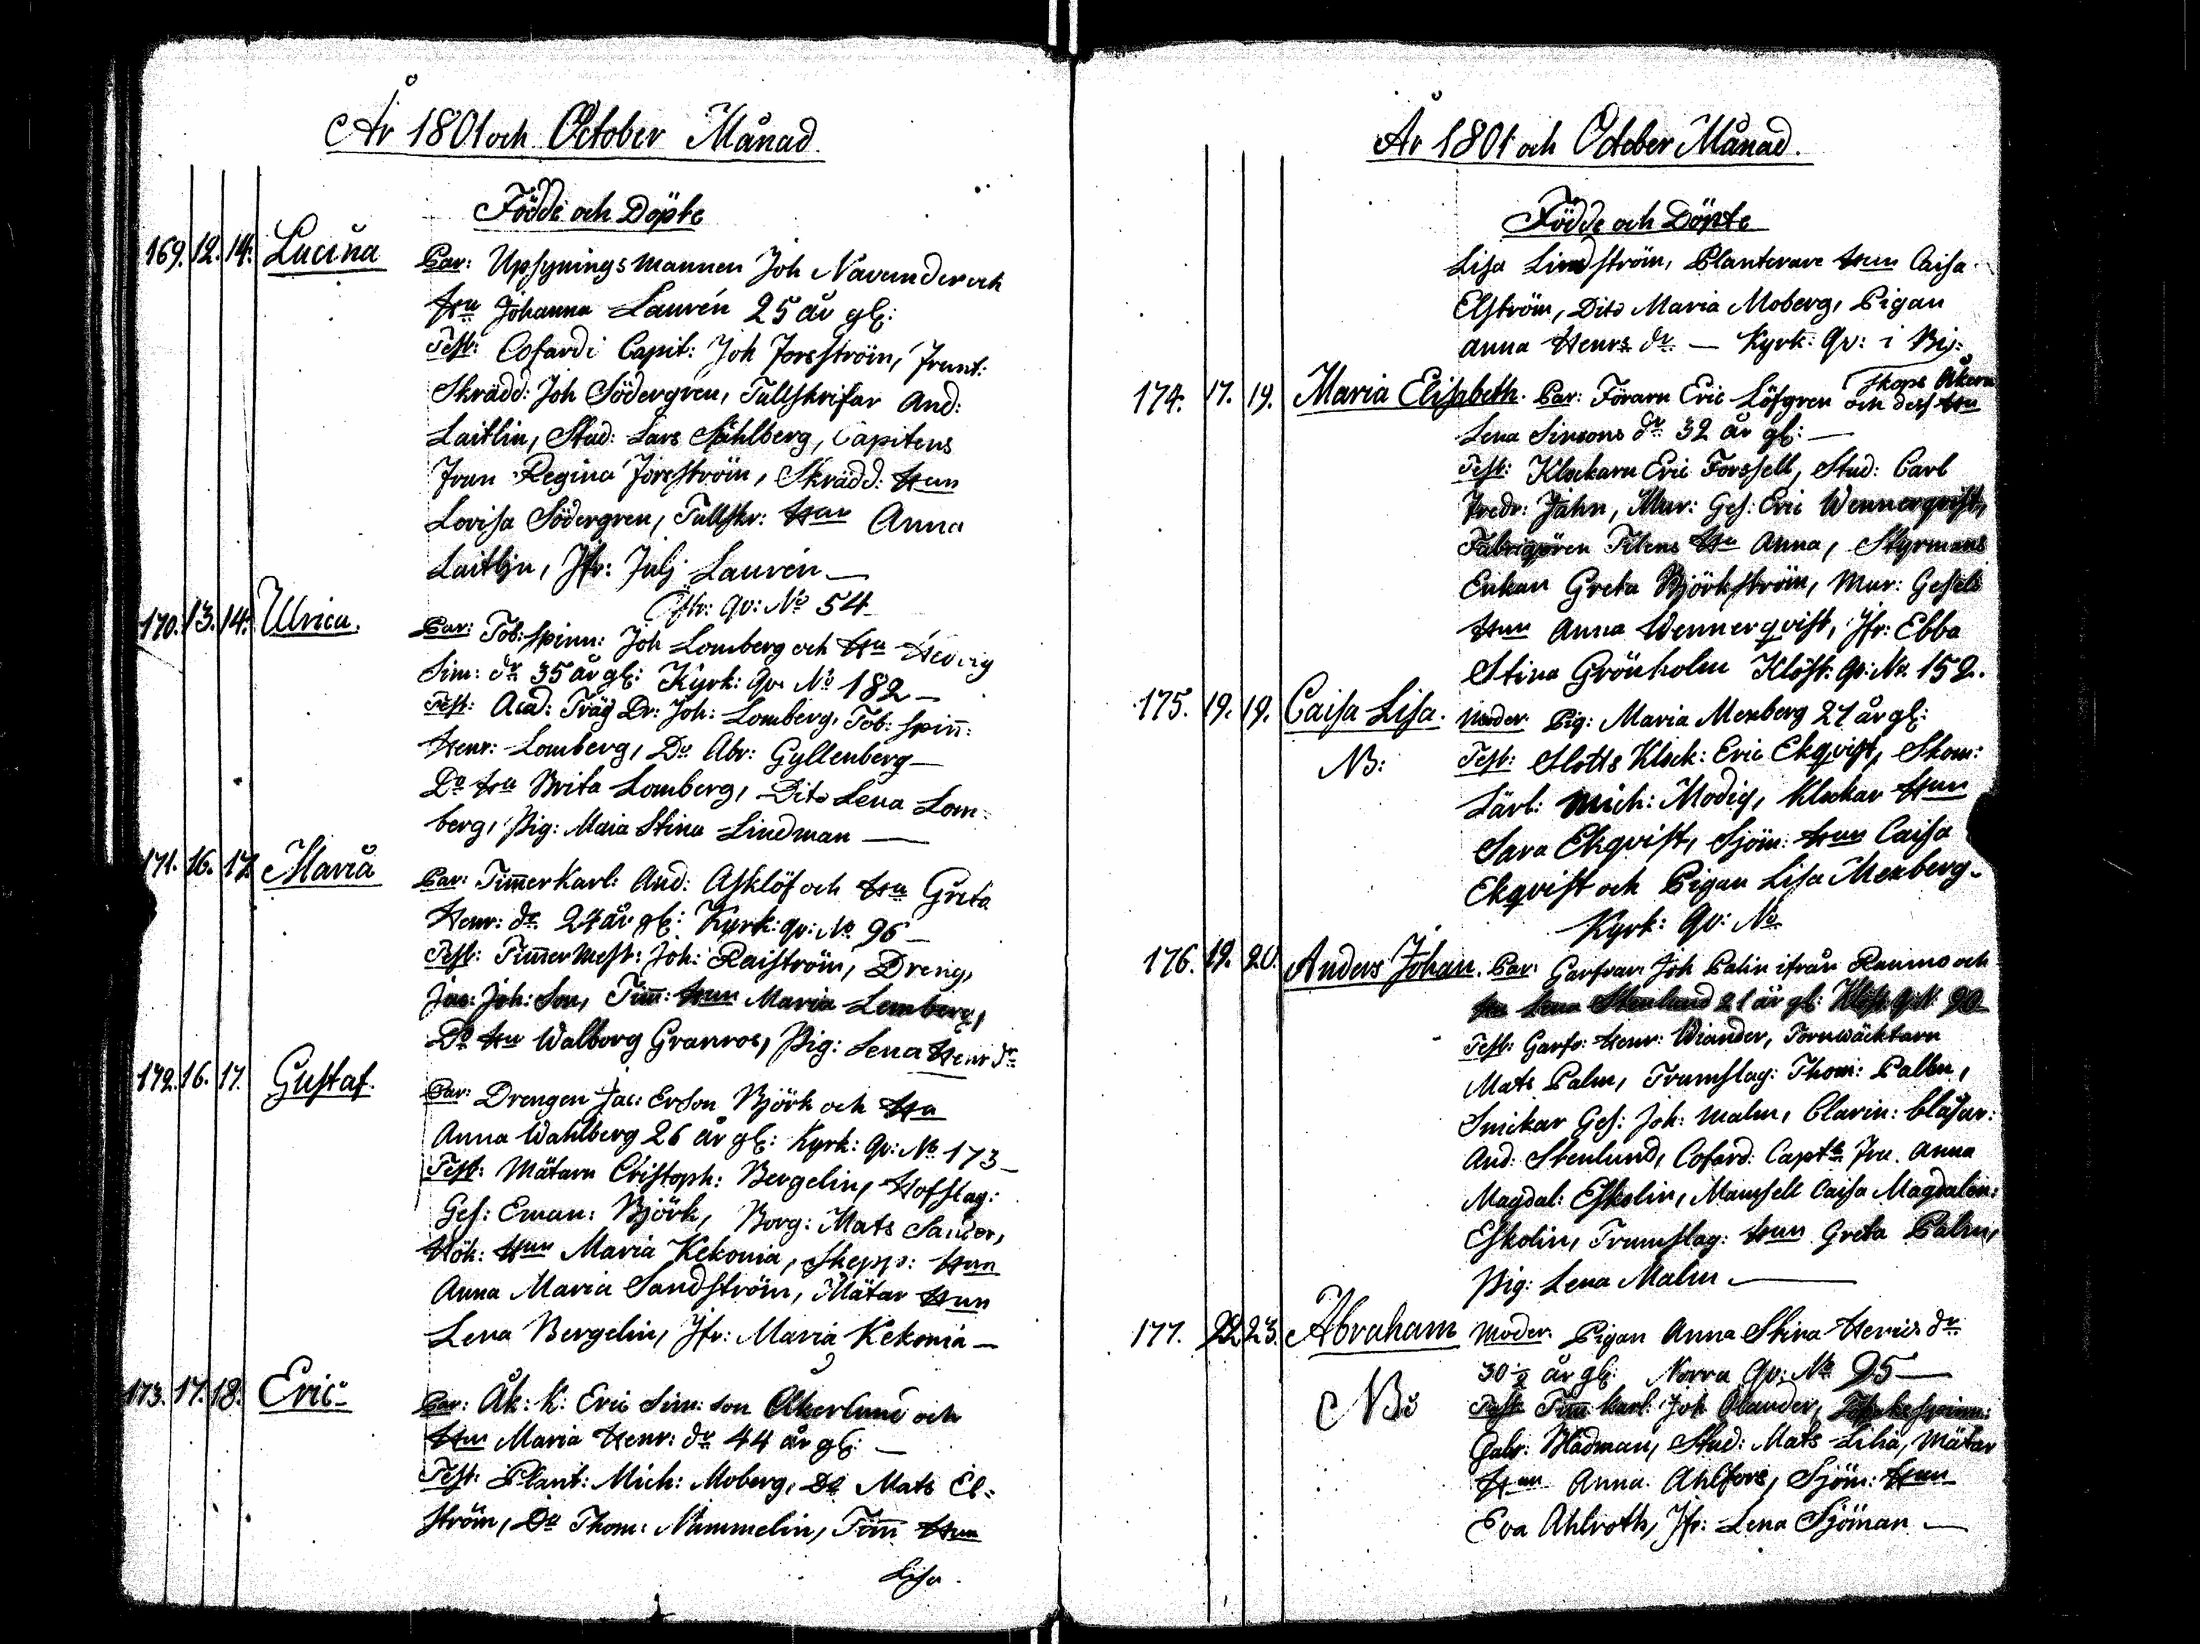 År 1801 och October Månad.
Födde och Döpte
169. 12. 14. Lucina Par: Upsynings mannen Joh Navander och
Hu Johanna Laurén 25 år gl:
Test: Cofardi Capit: Joh Forsström, Frunt:
Skrädd: Joh Södergrén, Tullskrifar And:
Laitlin, Stud: Lars Sahlberg, Capitens
Frun Regina Forsström, Skrädd: Hun
Lovisa Södergren, Tullskr: Hun Anna
Laitlin, Jfr: Julj Laurén —
qv: No 54
170. 13. 14. Ulrica. Par: Tob: spinn: Joh Lomberg och Hu Hedvig
Sim: dr 35 år gl: Kyrk: qv. No 182 —
Test: Acad: Träg Dr: Joh: Lomberg, Tob: spiñ:
Henr: Lomberg, Do Abr: Gyllenberg —
Do Hu Brita Lomberg, Dito Lena Lom-
berg, Pig: Maia Stina Lindman —
171. 16. 17. Maria Par: Timerkarl: And: Asklöf och Hu Greta
Henr: dr 24 år gl: Kyrk: qv: No 96 —
Test: Timer mest: Joh: Raiström, Dreng,
Jac: Joh: Son, Tim: Hun Maria Lemberg,
Do Hu Walborg Granroc, Pig: Lena Henr dr
172. 16. 17. Gustaf. Par: Drengen Jac: Erson Björk och Hu
Anna Wahlberg 26 år gl: Kyrk: qv: No 173 —
Test: Mätarn Christoph: Bergelin, Hofslag:
Ges: Eman: Björk, Borg: Mats Sander,
Hök: Hun Maria Kekonia, Skepp: Hun
Anna Maria Sandström, Mätar Hun
Lena Bergelin, Jfr: Maria Kekonia —
173. 17. 18. Eric Par: Åk: K: Eric Sim: son Åkerlund och
Hu Maria Henr: dr 44 år gl: —
Test: Plant: Mich: Moberg, Do Mats El-
ström, Do Thom: Nummelin, Tim Hun
Lisa
År 1801 och October Månad.
Födde och Döpte
Lisa Lindström, Planterare Hun Caisa
Elström, Dito Maria Moberg, Pigan
Anna Henrs dr — Kyrk: qv: i Bi-
skops Åkern
174. 17. 19. Maria Elisabeth. Par: Förarn Eric Löfgren och dess Hu
Lena Simons dr 32 år gl: —
Test: Klockarn Eric Forssell, Stud: Carl
Fredr: Jahn, Mur: Ges: Eric Wennerqvist,
Fabriqören Titens Hu Anna, Styrmans
Enkan Greta Björkström, Mur: Gesels
Hun Anna Wennerqvist, Jfr: Ebba
Stina Grönholm Klöst: qv: No 152.
175. 19. 19. Caisa Lisa. Moder Pig: Maria Menberg 27 år gl:
NB: Test: Slotts Klock: Eric Ekqvist, Skom:
Lärl: Mich: Modig, Klockar Hun
Sara Ekqvist, Sjöm: Hun Caisa
Ekqvist och Pigan Lisa Menberg —
Kyrk: qv: No
176. 19. 20. Anders Johan. Par: Garfvar: Joh Palin ifrån Raumo och
Hu Lena Stenlund 21 år gl: Klöst: q: N: 90
Test: Garfv: Henr: Wiander, Tornwäktarn
Mats Palm, Trumslag: Thom: Palm,
Snickar Ges: Joh: Malm, Clarin: blåsar:
And: Stenlund, Cofard: Captn Fru Anna
Magdal: Eskolin, Mamsell Caisa Magdalen:
Eskolin, Trumslag: Hun Greta Palm,
Pig: Lena Malm —
177. 22. 23. Abraham Moder Pigan Anna Stina Henrics dr
30½ år gl: Norra qv: No 95 —
NB: Test: Tim karl: Joh Olander, spinn:
Gabr: Bladman, Stud: Mats Lilia, Mätar
Hun Anna Ahlfors, Sjöm: Hun
Eva Ahlroth, Jfr: Lena Sjöman —